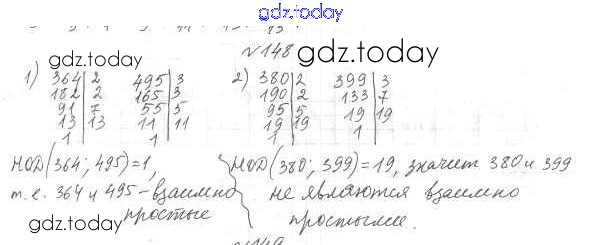 gdz.today
№148
gdz.today
1) 364 | 2 495 | 3 2) 380 | 2 399 | 3
182 | 2 165 | 3 190 | 2 133 | 7
91 | 7 55 | 5 95 | 5 19 | 19
13 | 13 11 | 11 19 | 19 1
1 1 1
gdz.today
НОД(364; 495)=1,
т.е. 364 и 495 - взаимно
простые
НОД(380; 399)=19, значит 380 и 399
не являются взаимно
простыми.
gdz.today
№149